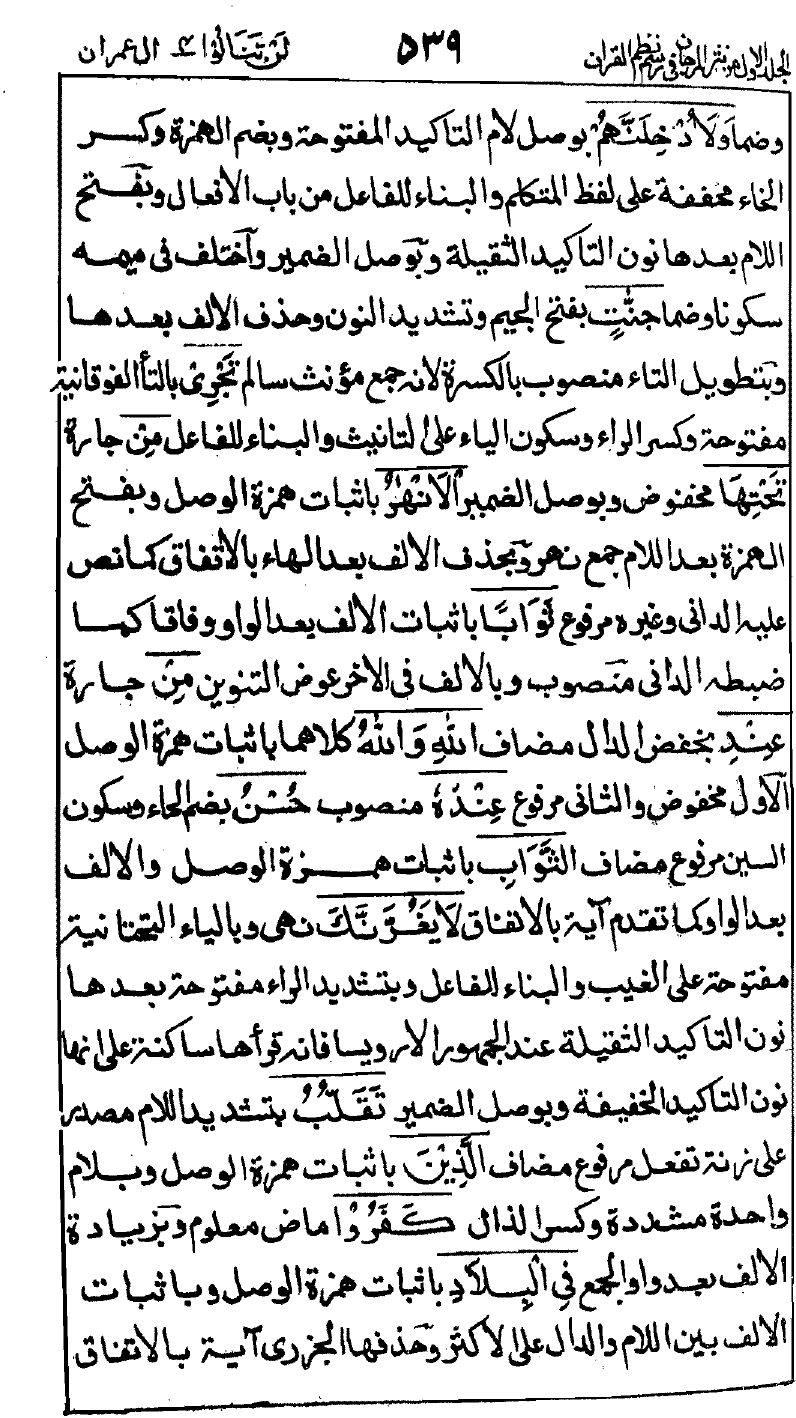 الجلد الاول من نثر المرجان في رسم نظم القران ٥٣٩ لن تنالوا ٤ ال عمران
وضما وَلَأُدْخِلَنَّهُمْ بوصل لام التاكيد المفتوحة وبضم الهمزة وكسر
الخاء مخففة على لفظ المتكلم والبناء للفاعل من باب الافعال وبفتح
اللام بعدها نون التاكيد الثقيلة وبوصل الضمير واختلف فى ميمه
سكونا وضما جَنّٰتٍ بفتح الجيم وتشديد النون وحذف الالف بعدها
وبتطويل التاء منصوب بالكسرة لانه جمع مؤنث سالم تَجْرِىْ بالتاء الفوقانية
مفتوحة وكسر الراء وسكون الياء على التانيث والبناء للفاعل مِنْ جارة
تَحْتِهَا مخفوض وبوصل الضمير الْاَنْهٰرُ باثبات همزة الوصل وبفتح
الهمزة بعد اللام جمع نهر وبحذف الالف بعد الهاء بالاتفاق كما نص
عليه الدانى وغيره مرفوع ثَوَابًا باثبات الالف بعد الواو وفاقا كما
ضبطه الدانى منصوب وبالالف فى الاخر عوض التنوين مِنْ جارة
عِنْدِ بخفض الدال مضاف اللّٰهِ وَاللّٰهُ كلاهما باثبات همزة الوصل
الاول مخفوض والثانى مرفوع عِنْدَهٗ منصوب حُسْنُ بضم الحاء وسكون
السين مرفوع مضاف الثَّوَابِ باثبات همزة الوصل والالف
بعد الواو كما تقدم آية بالاتفاق لَا يَغُرَّنَّكَ نهى وبالياء التحتانية
مفتوحة على الغيب والبناء للفاعل وبتشديد الراء مفتوحة بعدها
نون التاكيد الثقيلة عند الجمهور الا رويسا فانه قرأها ساكنة على انها
نون التاكيد الخفيفة وبوصل الضمير تَقَلُّبُ بتشديد اللام مصدر
على زنة تفعل مرفوع مضاف الَّذِيْنَ باثبات همزة الوصل وبلام
واحدة مشددة وكسر الذال كَفَرُوْا ماض معلوم وبزيادة
الالف بعد واو الجمع فِى الْبِلَادِ باثبات همزة الوصل وباثبات
الالف بين اللام والدال على الاكثر وحذفها الجزرى آية بالاتفاق